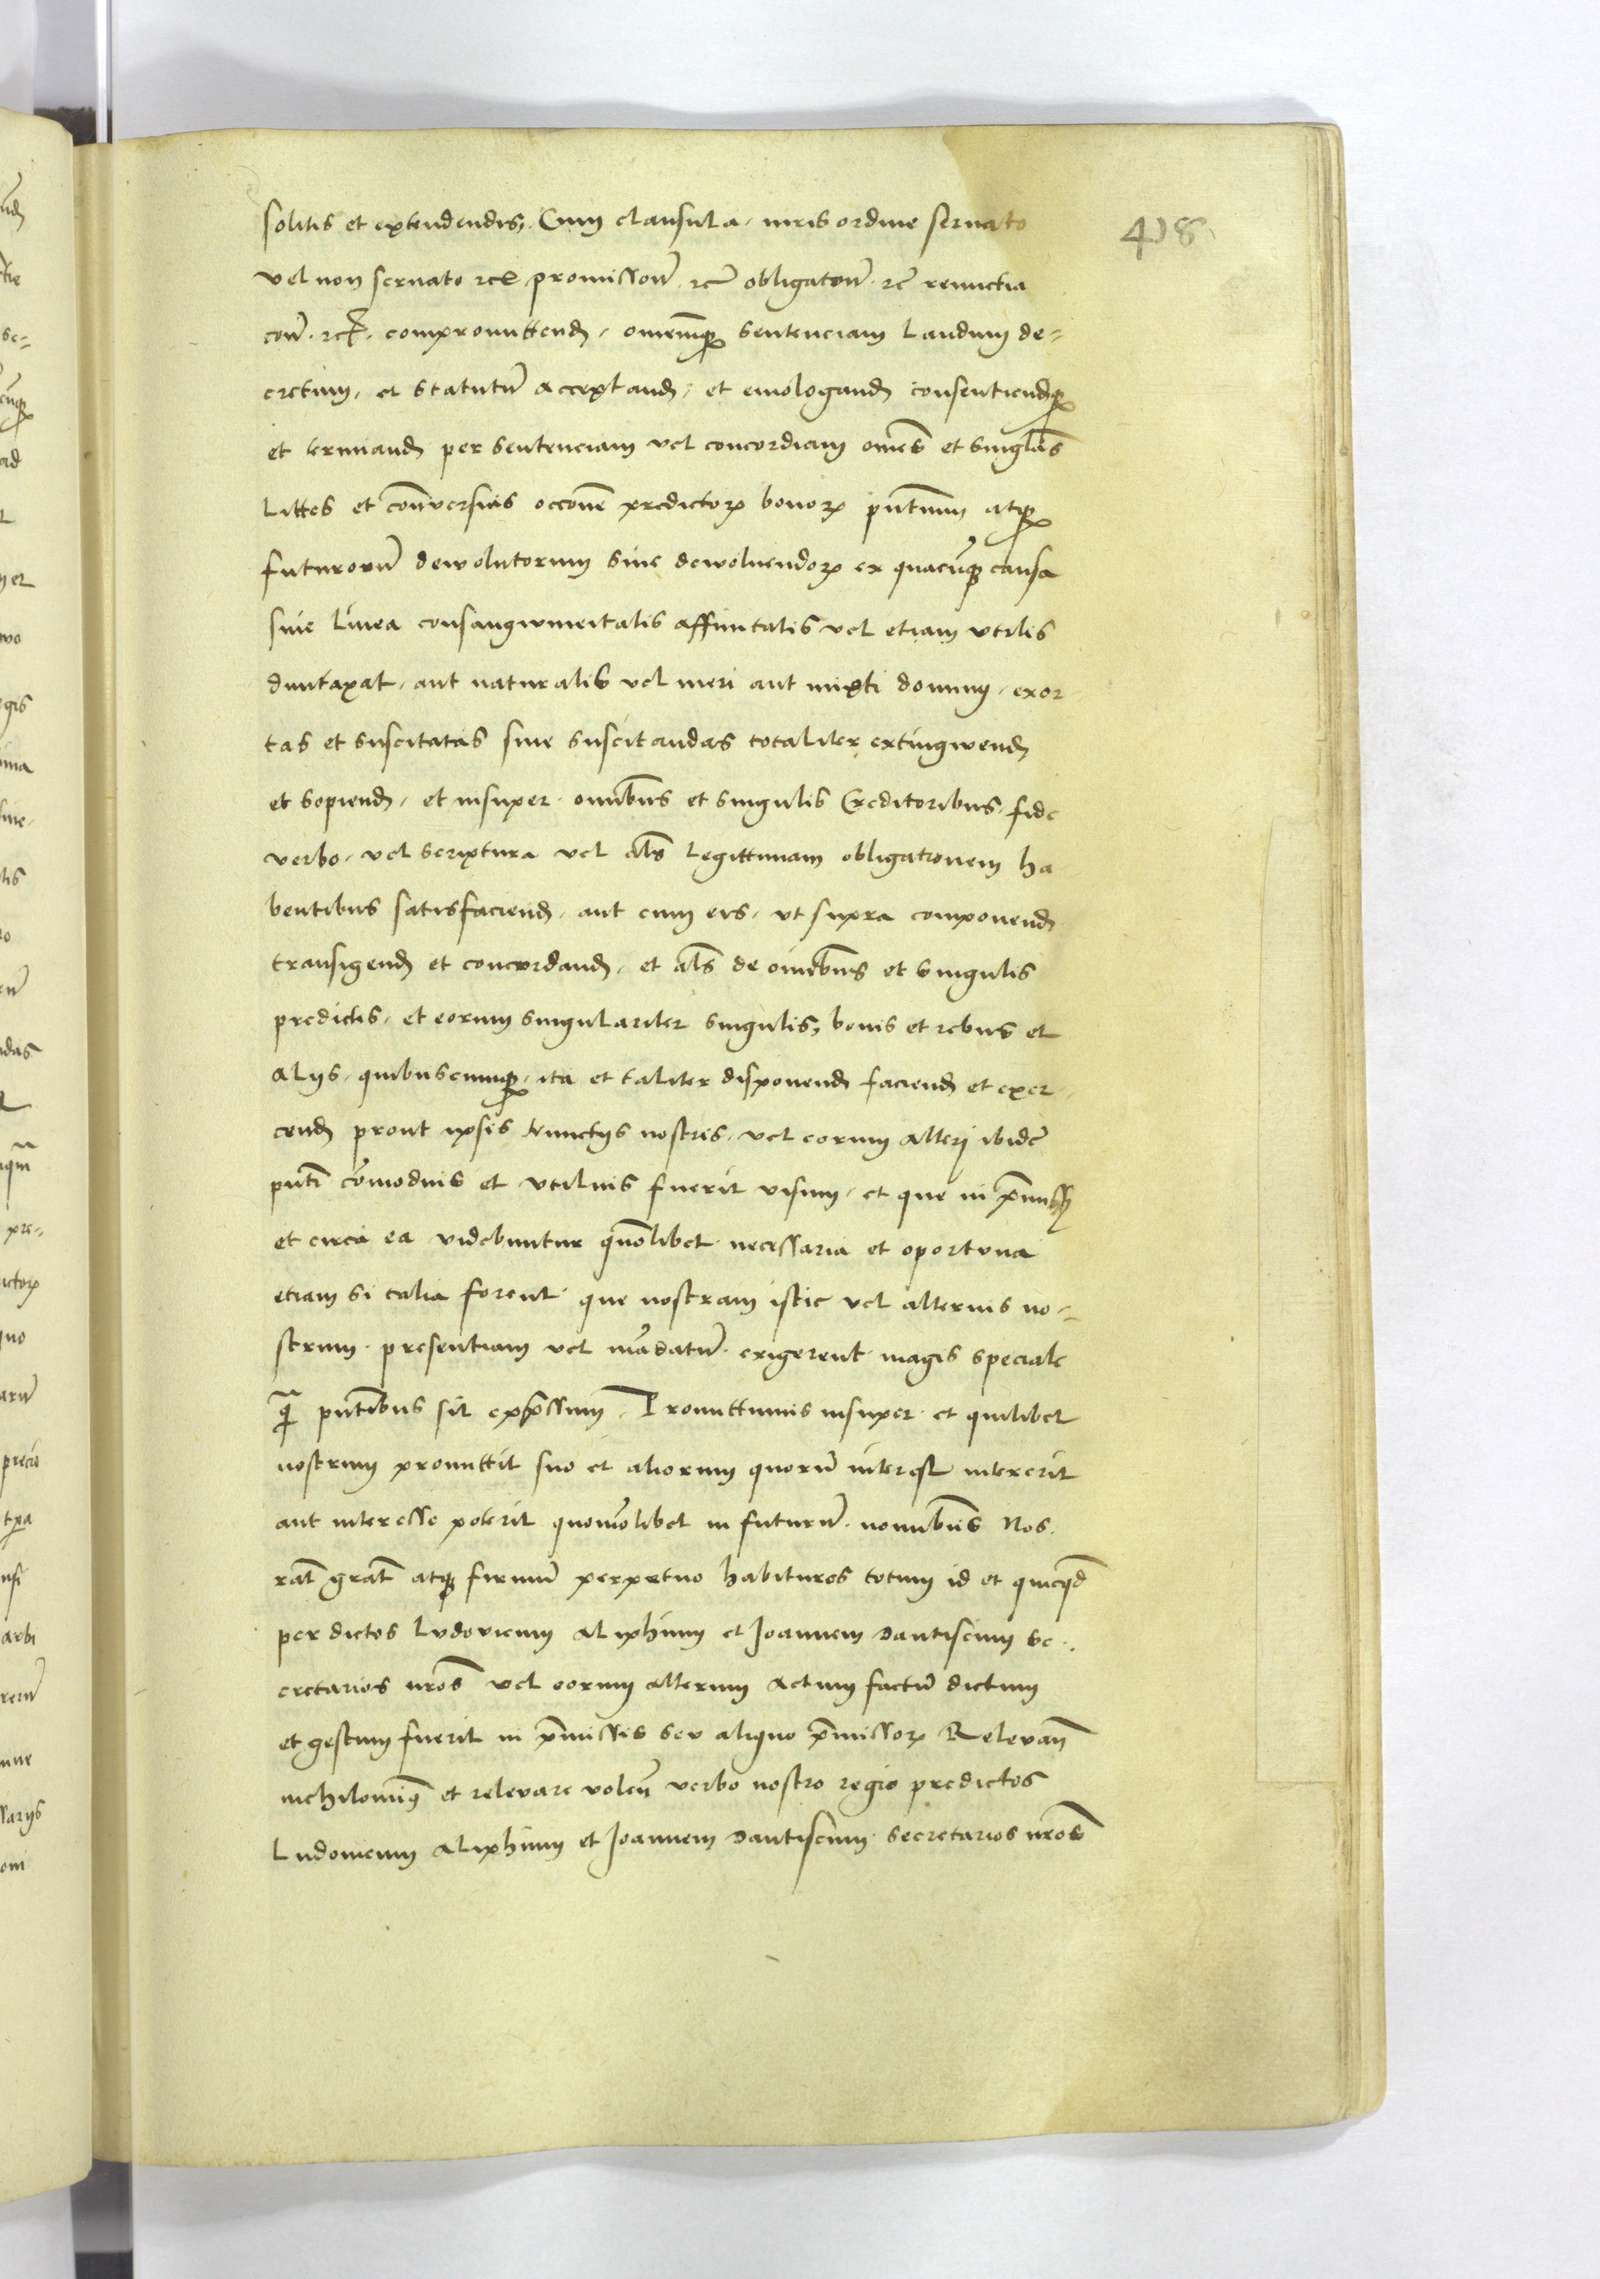 418
solitis et extendendis, Cum clausula, iuris ordine seruato
vel non seruato etc̃ promissoñ etc̃ obligatoñ etc̃ renuctia
coñ etc̃ compromittend̃, omnemq̃ sentenciam laudum de-
cretum, et statutũ acceptand̃, et emologand̃ consentiendq̃
et terminand̃ per sentenciam vel concordiam om̃es et singlas̃
littes et cont̃versias occoñe predictoꝝ bonoꝝ pñtium atq̃
futurorũ dewolutorum siue dewoluendoꝝ ex quacũq̃ causa
siue linea consangwineitatis affinitatis vel etiam vtilis
duntaxat, aut naturalis vel meri aut mixti dominij, exor
tas et suscitatas siue suscitandas totaliter extingwend̃
et sopiend̃, et insuper omnibus et singulis Creditoribus, fide
verbo, vel scriptura vel als̃ legittimam obligationem ha
bentibus satisfaciend̃, aut cum eis, vt supra componend̃
transigend̃ et concordand̃, et als̃ de om̃ibus et singulis
predictis, et eorum singulariter singulis, bonis et rebus et
alijs, quibuscumq̃, ita et taliter disponend̃ faciend̃ et exer-
cend̃ prout ipsis nunctijs nostris, vel eorum alteri ibidẽ
pñti cõmodius et vtilius fuerit visum, et que in p̃missis
et circa ea videbuntur quõlibet necessaria et oportuna
etiam si talia forent que nostram istic vel alterius no-
strum presentiam vel mãdatũ exigerent magis speciale
q̃ pñtibus sit exp̃ssum, Promittimus insuper et quilibet
nostrum promittit suo et aliorum quorũ interest intererit
aut interesse poterit quomõlibet in futurũ nominibus Nos
rat̃ grat̃ atq̃ firmũ perpetuo habituros totum id et quicq̃d
per dictos Ludovicum Aliphium et Joannem Dantiscum se-
cretarios nr̃os vel eorum alterum actum factũ dictum
et gestum fuerit in p̃missis seu aliquo p̃missoꝝ Relevan̄
nichilomiñ et relevare volen̄ verbo nostro regio predictos
Ludouicum Aliphium et Joannem Dantiscum secretarios nr̃os